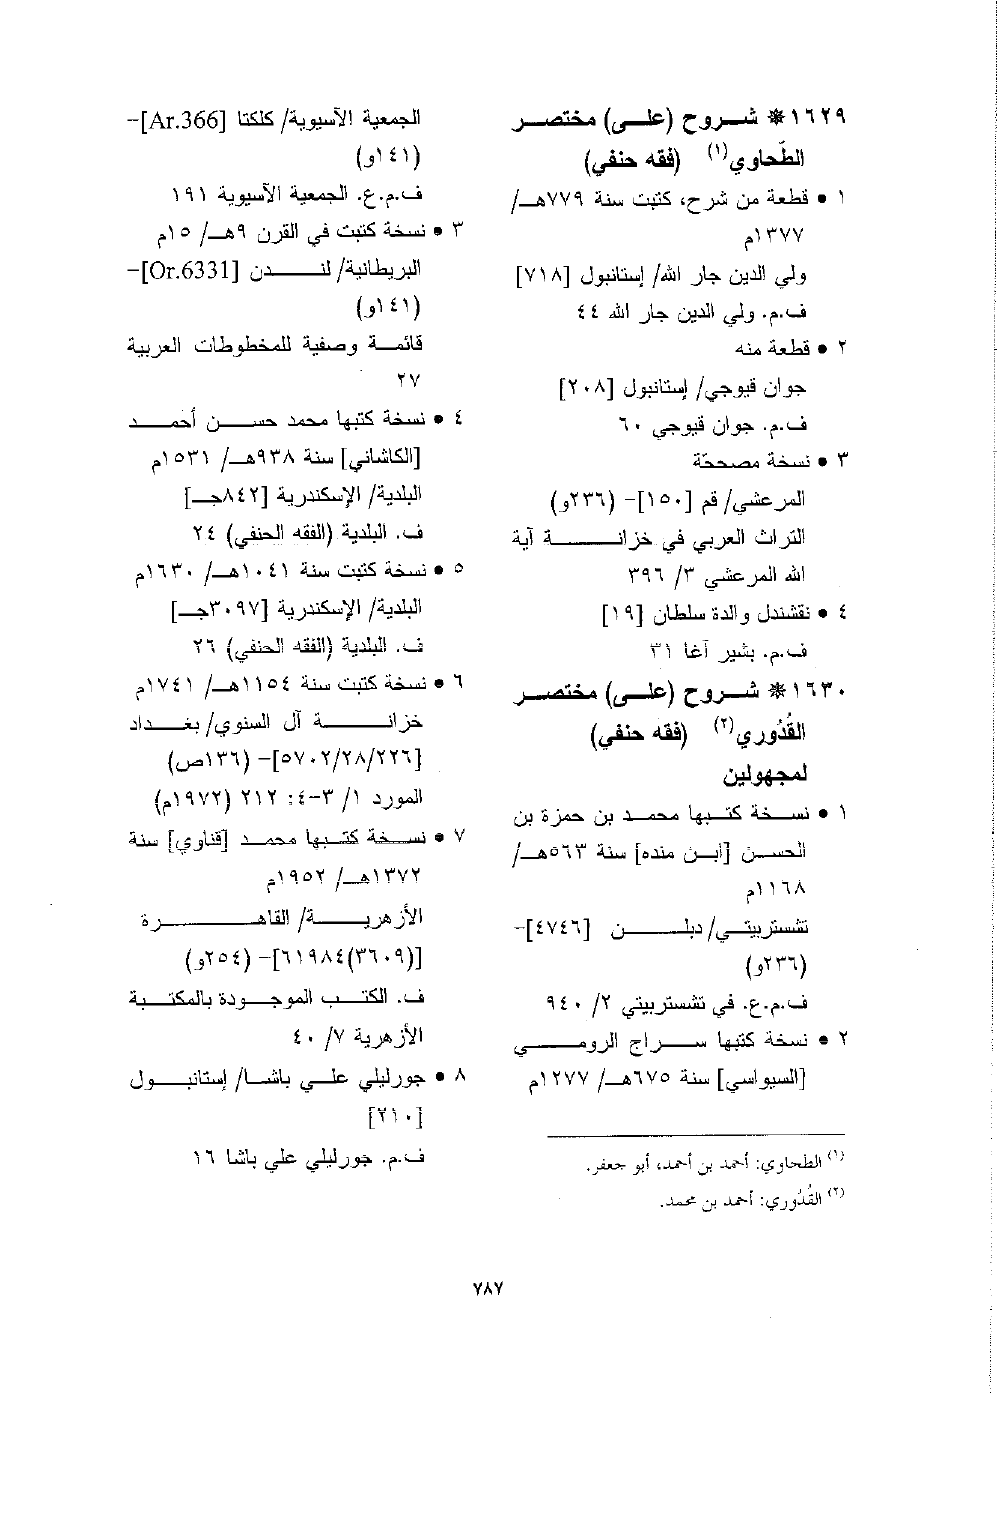 ١٦٢٩* شروح (على) مختصر
الطّحاوي(١) (فقه حنفي)
١ • قطعة من شرح، كتبت سنة ٧٧٩هـ/
١٣٧٧م
ولي الدين جار الله/ إستانبول [٧١٨]
ف.م. ولي الدين جار الله ٤٤
٢ • قطعة منه
جوان قيوجي/ إستانبول [٢٠٨]
ف.م. جوان قيوجي ٦٠
٣ • نسخة مصححّة
المرعشي/ قم [١٥٠]- (٢٣٦و)
التراث العربي في خزانة آية
الله المرعشي ٣/ ٣٩٦
٤ • نقشندل والدة سلطان [١٩]
ف.م. بشير آغا ٣١
١٦٣٠* شروح (على) مختصر
القُدُوري(٢) (فقه حنفي)
لمجهولين
١ • نسخة كتبها محمد بن حمزة بن
الحسن [ابن منده] سنة ٥٦٣هـ/
١١٦٨م
تشستربيتي/ دبلن [٤٧٤٦]-
(٢٣٦و)
ف.م.ع. في تشستربيتي ٢/ ٩٤٠
٢ • نسخة كتبها سراج الرومي
[السيواسي] سنة ٦٧٥هـ/ ١٢٧٧م
(١) الطحاوي: أحمد بن أحمد، أبو جعفر.
(٢) القُدُوري: أحمد بن محمد.
الجمعية الآسيوية/ كلكتا [Ar.366]-
(١٤١و)
ف.م.ع. الجمعية الآسيوية ١٩١
٣ • نسخة كتبت في القرن ٩هـ/ ١٥م
البريطانية/ لندن [Or.6331]-
(١٤١و)
قائمة وصفية للمخطوطات العربية
٢٧
٤ • نسخة كتبها محمد حسن أحمد
[الكاشاني] سنة ٩٣٨هـ/ ١٥٣١م
البلدية/ الإسكندرية [٨٤٢جـ]
ف. البلدية (الفقه الحنفي) ٢٤
٥ • نسخة كتبت سنة ١٠٤١هـ/ ١٦٣٠م
البلدية/ الإسكندرية [٣٠٩٧جـ]
ف. البلدية (الفقه الحنفي) ٢٦
٦ • نسخة كتبت سنة ١١٥٤هـ/ ١٧٤١م
خزانة آل السنوي/ بغداد
[٥٧٠٢/٢٨/٢٢٦]- (١٣٦ص)
المورد ١/ ٣-٤: ٢١٢ (١٩٧٢م)
٧ • نسخة كتبها محمد [قناوي] سنة
١٣٧٢هـ/ ١٩٥٢م
الأزهرية/ القاهرة
[(٣٦٠٩)٦١٩٨٤]- (٢٥٤و)
ف. الكتب الموجودة بالمكتبة
الأزهرية ٧/ ٤٠
٨ • جورليلي علي باشا/ إستانبول
[٢١٠]
ف.م. جورليلي علي باشا ١٦
٧٨٧